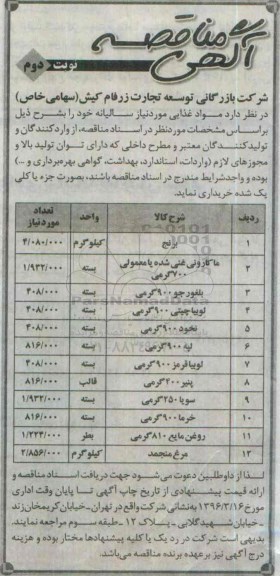 آگهی مناقصه
نوبت دوم
شرکت بازرگانی توسعه تجارت زرفام کیش (سهامی خاص)
در نظر دارد مواد غذایی موردنیاز سالیانه خود را بشرح ذیل
براساس مشخصات موردنظر در اسناد مناقصه، از واردکنندگان و
تولیدکنندگان معتبر و مطرح داخلی که دارای توان تولید بالا و
مجوزهای لازم (واردات، استاندارد، بهداشت، گواهی بهره‌برداری و ...)
بوده و واجد شرایط مندرج در اسناد مناقصه باشند، بصورت جزء یا کلی
یک شده خریداری نماید.
ردیف شرح کالا واحد تعداد موردنیاز
۱ برنج کیلوگرم ۴/۰۸۰/۰۰۰
۲ ماکارونی غنی شده یا معمولی ۷۰۰گرمی بسته ۱/۹۳۲/۰۰۰
۳ بلغور جو ۹۰۰گرمی بسته ۴۰۸/۰۰۰
۴ لوبیا چیتی ۹۰۰گرمی بسته ۴۰۸/۰۰۰
۵ نخود ۹۰۰گرمی بسته ۴۰۸/۰۰۰
۶ لپه ۹۰۰گرمی بسته ۸۱۶/۰۰۰
۷ لوبیا قرمز ۹۰۰گرمی بسته ۴۰۸/۰۰۰
۸ پنیر ۲۰۰گرمی قالب ۸۱۶/۰۰۰
۹ سویا ۲۵۰گرمی بسته ۱/۹۳۲/۰۰۰
۱۰ خرما ۹۰۰گرمی بسته ۸۱۶/۰۰۰
۱۱ روغن مایع ۸۱۰گرمی بطر ۱/۲۲۴/۰۰۰
۱۲ مرغ منجمد کیلوگرم ۲/۸۵۶/۰۰۰
لذا از داوطلبین دعوت می‌شود جهت دریافت اسناد مناقصه و
ارائه قیمت پیشنهادی از تاریخ چاپ آگهی تا پایان وقت اداری
مورخ ۱۳۹۶/۳/۱۶ به نشانی شرکت واقع در تهران- خیابان کریمخان زند
- خیابان شهید گلابی - پلاک ۱۲ - طبقه سوم مراجعه نمایند.
بدیهی است شرکت در رد یک یا کلیه پیشنهادها مختار بوده و هزینه
درج آگهی نیز برعهده برنده مناقصه می‌باشد.